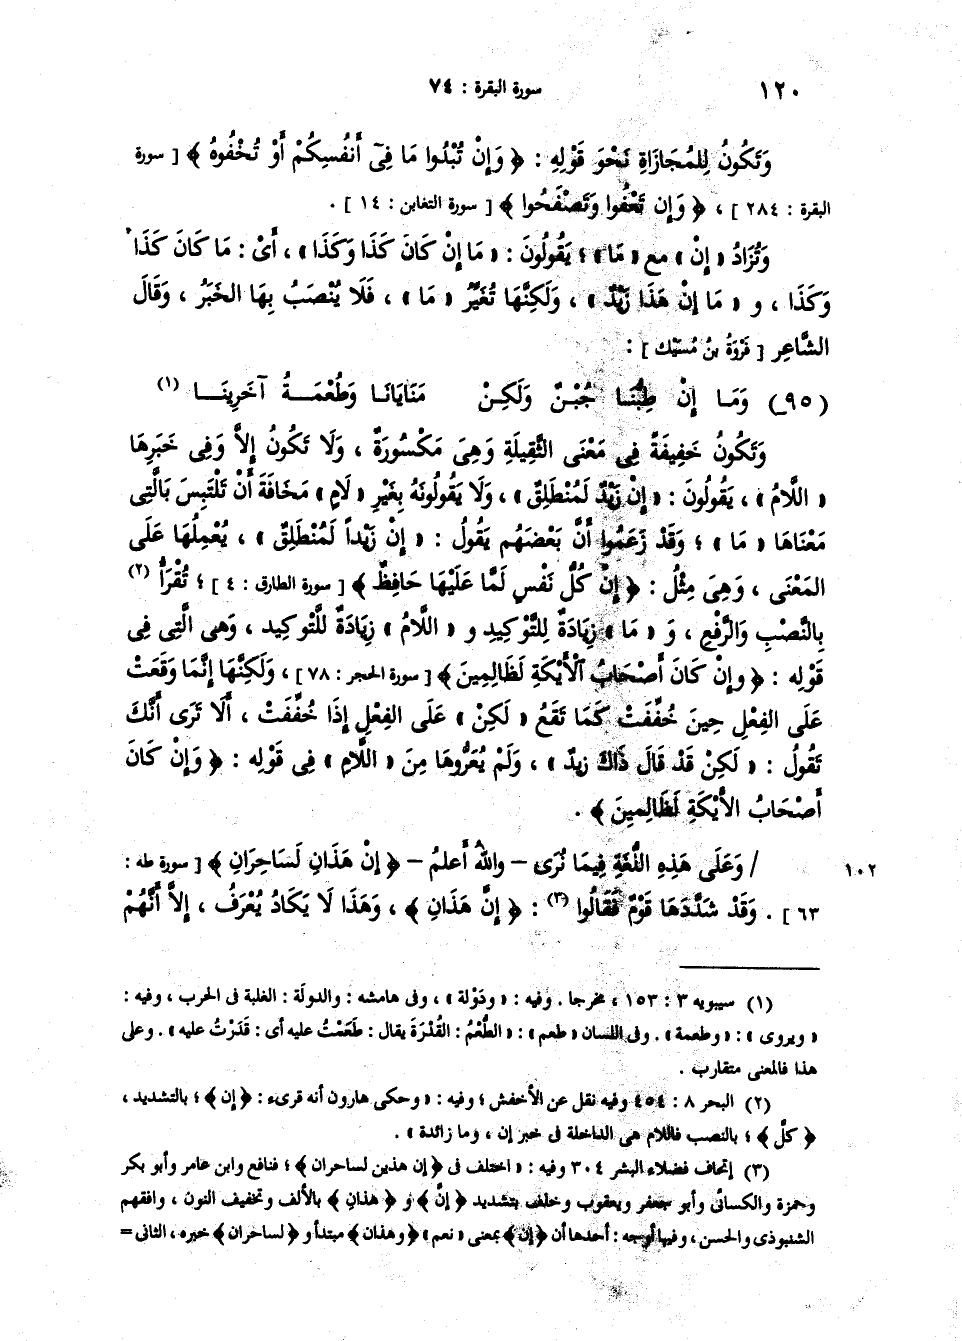 ١٢٠ سورة البقرة : ٧٤
وَتَكُونُ لِلمُجَازَاةِ نَحْوَ قَوْلِهِ : ﴿ وَإِنْ تُبْدُوا مَا فِىٓ أَنْفُسِكُمْ أَوْ تُخْفُوهُ ﴾ [ سورة
البقرة : ٢٨٤ ] ، ﴿ وَإِن تَعْفُوا وَتَصْفَحُوا ﴾ [ سورة التغابن : ١٤ ] .
وَتُزَادُ « إِنْ » مع « مَا » ؛ يَقُولُونَ : « مَا إِنْ كَانَ كَذَا وَكَذَا » ، أَىْ : مَا كَانَ كَذَا
وَكَذَا ، و « مَا إِنْ هَذَا زَيْدٌ » ، وَلَكِنَّهَا تُغَيِّرُ « مَا » ، فَلَا يُنْصَبُ بِهَا الخَبَرُ ، وَقَالَ
الشَّاعِر [ فَرْوَةُ بنُ مُسَيْك ] :
(٩٥) وَمَا إِنْ طِبُّنَا جُبْنٌ وَلَكِنْ مَنَايَانَا وَطُعْمَةُ آخَرِينَا (١)
وَتَكُونُ خَفِيفَةً فِى مَعْنَى الثَّقِيلَةِ وَهِىَ مَكْسُورَةٌ ، وَلَا تَكُونُ إِلاَّ وَفِى خَبَرِهَا
« اللَّامُ » ، يَقُولُونَ : « إِنْ زَيْدٌ لَمُنْطَلِقٌ » ، وَلَا يَقُولُونَهُ بِغَيْرِ « لَامٍ » مَخَافَةَ أَنْ تَلْتَبِسَ بَالَّتِى
مَعْنَاهَا « مَا » ؛ وَقَدْ زَعَمُوا أَنَّ بَعْضَهُم يَقُولُ : « إِنْ زَيْداً لَمُنْطَلِقٌ » ، يُعْمِلُهَا عَلَى
المَعْنَى ، وَهِىَ مِثْلُ : ﴿ إِنْ كُلُّ نَفْسٍ لَمَّا عَلَيْهَا حَافِظٌ ﴾ [ سورة الطارق : ٤ ] ؛ تُقْرَأُ (٢)
بِالنَّصْبِ وَالرَّفْعِ ، وَ « مَا » زِيَادَةٌ لِلتَّوْكِيدِ و « اللَّامُ » زِيَادَةٌ للتَّوكِيد ، وَهى الَّتِى فِى
قَوْلِه : ﴿ وإِنْ كَانَ أَصْحَابُ ٱلْأَيْكَةِ لَظَالِمِينَ ﴾ [ سورة الحجر : ٧٨ ] ، وَلَكِنَّهَا إِنَّمَا وَقَعَتْ
عَلَى الفِعْلِ حِينَ خُفِّفَتْ كَمَا تَقَعُ « لَكِنْ » عَلَى الفِعْلِ إِذَا خُفِّفَتْ ، أَلَا تَرَى أَنَّكَ
تَقُولُ : « لَكِنْ قَدْ قَالَ ذَاكَ زيدٌ » ، وَلَمْ يُعَرُّوهَا مِنَ « اللَّامِ » فِى قَوْلِه : ﴿ وَإِنْ كَانَ
أَصْحَابُ الأَيْكَةِ لَظَالِمِينَ ﴾ .
١٠٢ / وَعَلَى هَذِهِ اللُّغَةِ فِيمَا نُرَى – واللهُ أَعلمُ – ﴿ إِنْ هَذَانِ لَسَاحِرَانِ ﴾ [ سورة طه :
٦٣ ] . وَقَدْ شَدَّدَهَا قَوْمٌ فَقَالُوا (٣) : ﴿ إِنَّ هَذَانِ ﴾ ، وَهَذَا لَا يَكَادُ يُعْرَفُ ، إِلاَّ أَنَّهُمْ
(١) سيبويه ٣ : ١٥٣ ، مخرجا . وفيه : « ودَوْلة » ، وفى هامشه : والدولَة : الغلبة فى الحرب ، وفيه :
« ويروى » : « وطعمة » . وفى اللسان « طعم » : « الطُّعْمُ : القُدْرَةَ يقال : طَعَمْتُ عليه أى : قَدَرْتُ عليه » . وعلى
هذا فالمعنى متقارب .
(٢) البحر ٨ : ٤٥٤ وفيه نقل عن الأخفش ؛ وفيه : « وحكى هارون أنه قرىء : ﴿ إن ﴾ ؛ بالتشديد ،
﴿ كلَّ ﴾ ؛ بالنصب فاللام هى الداخلة فى خبر إن ، وما زائدة » .
(٣) إتحاف فضلاء البشر ٣٠٤ وفيه : « اختلف فى ﴿ إن هذين لساحران ﴾ ؛ فنافع وابن عامر وأبو بكر
وحمزة والكسائى وأبو جعفر ويعقوب وخلف بتشديد ﴿ إنَّ ﴾ و ﴿ هذانِ ﴾ بالألف وتخفيف النون ، وافقهم
الشنبوذى والحسن ، وفيها أوجه : أحدها أن ﴿ إن ﴾ بمعنى « نعم » ﴿ وهذان ﴾ مبتدأ و ﴿ لساحران ﴾ خبره ، الثانى =